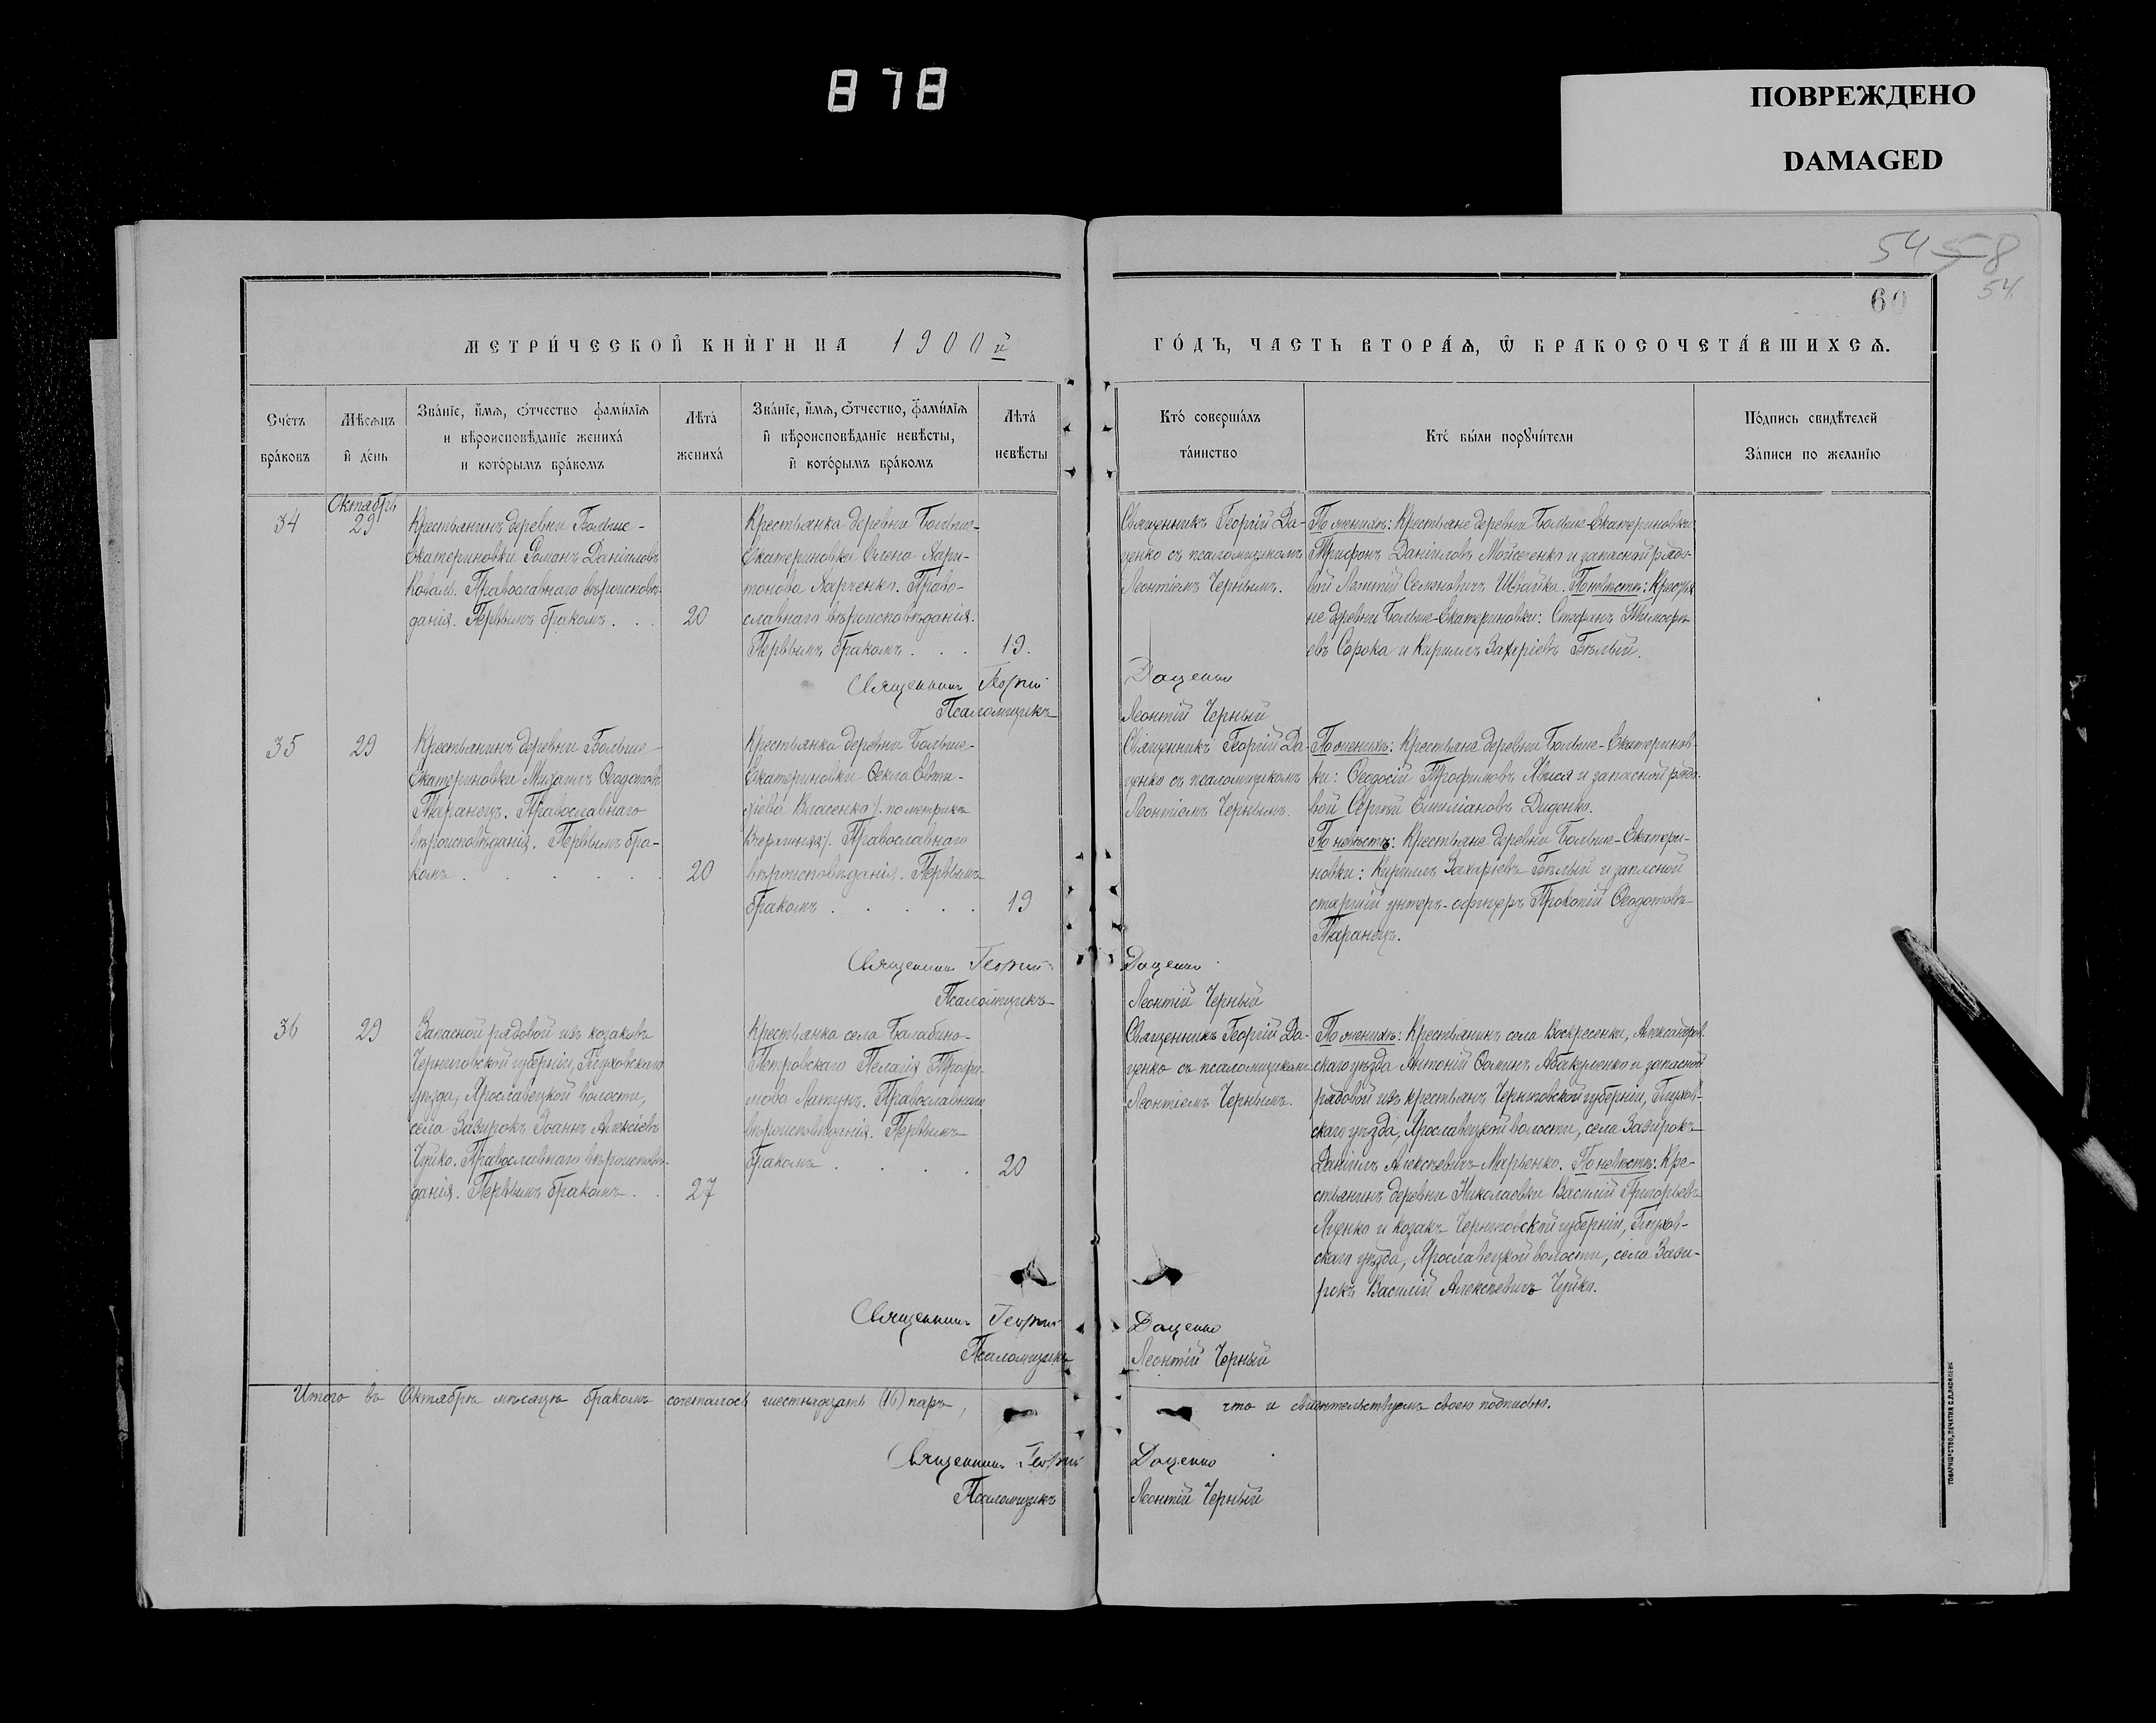 878
ПОВРЕЖДЕНО
DAMAGED
54 58
54
60
МЕТРИ́ЧЕСКОЙ КНИ́ГИ НА 1900й
ГО́ДЪ, ЧАСТЬ ВТОРА́Ѧ, Ѡ БРАКОСОЧЕТА́ВШИХСѦ.
Сче́тъ
бра́ковъ
Мѣ́сѧцъ
и҆ де́нь
Зва́нїе, и҆́мѧ, ѻ҆́тчество фами́лїѧ
и вѣроисповѣ́данїе жениха́
и кото́рымъ бра́комъ
Лѣта́
жениха́
Зва́нїе, и҆́мѧ, ѻ҆́тчество, фами́лїѧ
и҆ вѣроисповѣ́данїе невѣ́сты,
и҆ кото́рымъ бра́комъ
Лѣта́
невѣ́сты
Кто́ соверша́лъ
та́инство
Кто́ бы́ли порꙋчи́тели
По́дпись свидѣ́телей
За́писи по жела́нїю
Октябрь
34
29
Крестьянинъ деревни Больше-
Екатериновки Романъ Даніиловъ
Коваль. Православнаго вѣроисповѣ-
данія. Первымъ бракомъ . . .
20
Крестьянка деревни Больше-
Екатериновки Елена Хари-
тонова Харченко. Право-
славнаго вѣроисповѣданія.
Первымъ бракомъ . . .
19.
Священникъ Георгій Да-
ценко съ псаломщикомъ
Леонтіемъ Чернымъ.
По женихѣ: Крестьяне деревни Больше-Екатериновки:
Трифонъ Даніиловъ Мойсеенко и запасной рядо-
вой Леонтій Семеновичъ Швайка. По невѣстѣ: Крестья-
не деревни Больше-Екатериновки: Стефанъ Тимофе-
евъ Сорока и Кириллъ Захаріевъ Бѣлый.
Священникъ Георгій Даценко
Псаломщикъ Леонтій Черный
35
29
Крестьянинъ деревни Больше-
Екатериновки Михаилъ Ѳеодотовъ
Таранецъ. Православнаго
вѣроисповѣданія. Первымъ бра-
комъ . . . . . .
20
Крестьянка деревни Больше-
Екатериновки Ѳекла Евти-
хіева Власенко /: по метрикѣ
:/. Православнаго
вѣроисповѣданія. Первымъ
бракомъ . . . . .
19
Священникъ Георгій Да-
ценко съ псаломщикомъ
Леонтіемъ Чернымъ.
По женихѣ: Крестьяне деревни Больше-Екатеринов-
ки: Ѳеодосій Трофимовъ и запасной рядо-
вой Сергѣй Емиліановъ Диденко.
По невѣстѣ: Крестьяне деревни Больше-Екатери-
новки: Кириллъ Захаріевъ Бѣлый и запасной
старшій унтеръ-офицеръ Прокопій Ѳеодотовъ
Таранецъ.
Священникъ Георгій Даценко
Псаломщикъ Леонтій Черный
36
29
Запасной рядовой изъ козаковъ
Черниговской губерніи, Глуховскаго
уѣзда, Ярославецкой волости,
села Зазирокъ Іоаннъ Алексіевъ
Чуйко. Православнаго вѣроисповѣ-
данія. Первымъ бракомъ . .
27
Крестьянка села Балабино-
Петровскаго Пелагія Трофи-
мова Лапунъ. Православнаго
вѣроисповѣданія. Первымъ
бракомъ . . . .
20
Священникъ Георгій Да-
ценко съ псаломщикомъ
Леонтіемъ Чернымъ.
По женихѣ: Крестьянинъ села Воскресенки, Александров-
скаго уѣзда Антоній Ѳоминъ Абакуменко и запасной
рядовой изъ крестьянъ Черниговской губерніи, Глухов-
скаго уѣзда, Ярославецкой волости, села Зазирокъ
Даніилъ Алексѣевичъ Марченко. По невѣстѣ: Кре-
стьянинъ деревни Николаевки Василій Григорьевъ
Яценко и козакъ Черниговской губерніи, Глухов-
скаго уѣзда, Ярославецкой волости, села Зази-
рокъ Василій Алексѣевичъ Чуйко.
Священникъ Георгій Даценко
Псаломщикъ Леонтій Черный
Итого въ Октябрѣ мѣсяцѣ бракомъ сочеталось шестнадцать (16) паръ, что и свидѣтельствуемъ своею подписью.
Священникъ Георгій Даценко
Псаломщикъ Леонтій Черный